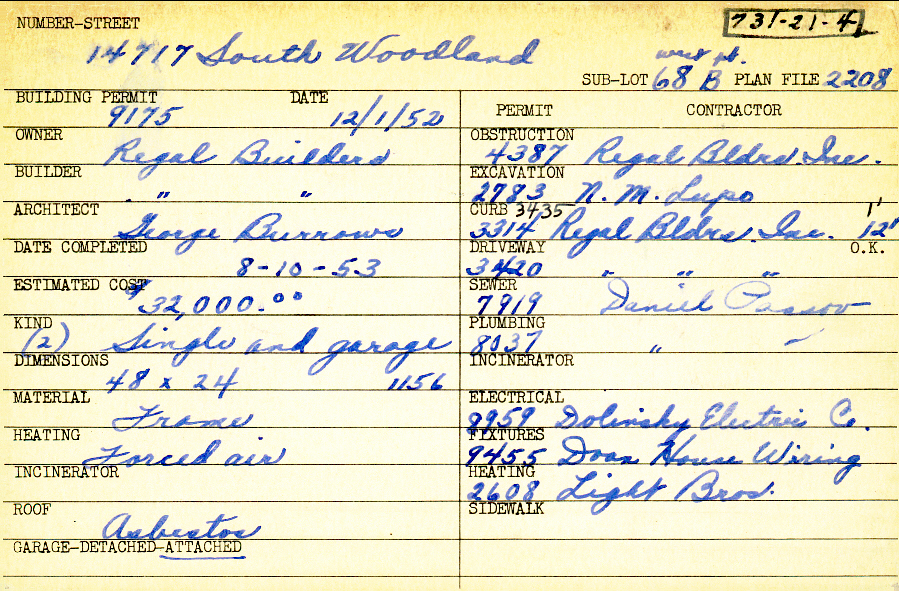 NUMBER-STREET 731-21-4
14717 South Woodland west pt.
SUB-LOT 68 B PLAN FILE 2208
BUILDING PERMIT DATE
9175 12/1/52
OWNER
Regal Builders
BUILDER
" "
ARCHITECT
George Burrows
DATE COMPLETED
8-10-53
ESTIMATED COST
$32,000.00
KIND
(2) Single and garage
DIMENSIONS
48 x 24 1156
MATERIAL
Frame
HEATING
Forced air
INCINERATOR
ROOF
Asbestos
GARAGE-DETACHED-ATTACHED
PERMIT CONTRACTOR
OBSTRUCTION
4387 Regal Bldrs. Inc.
EXCAVATION
2783 N. M. Lupo
CURB 3435 1'
3314 Regal Bldrs. Inc. 12'
DRIVEWAY O.K.
3420 " " "
SEWER
7919 Daniel Passov
PLUMBING
8037 " "
INCINERATOR
ELECTRICAL
8959 Dolinsky Electric Co.
FIXTURES
9455 Doan House Wiring
HEATING
2608 Light Bros.
SIDEWALK